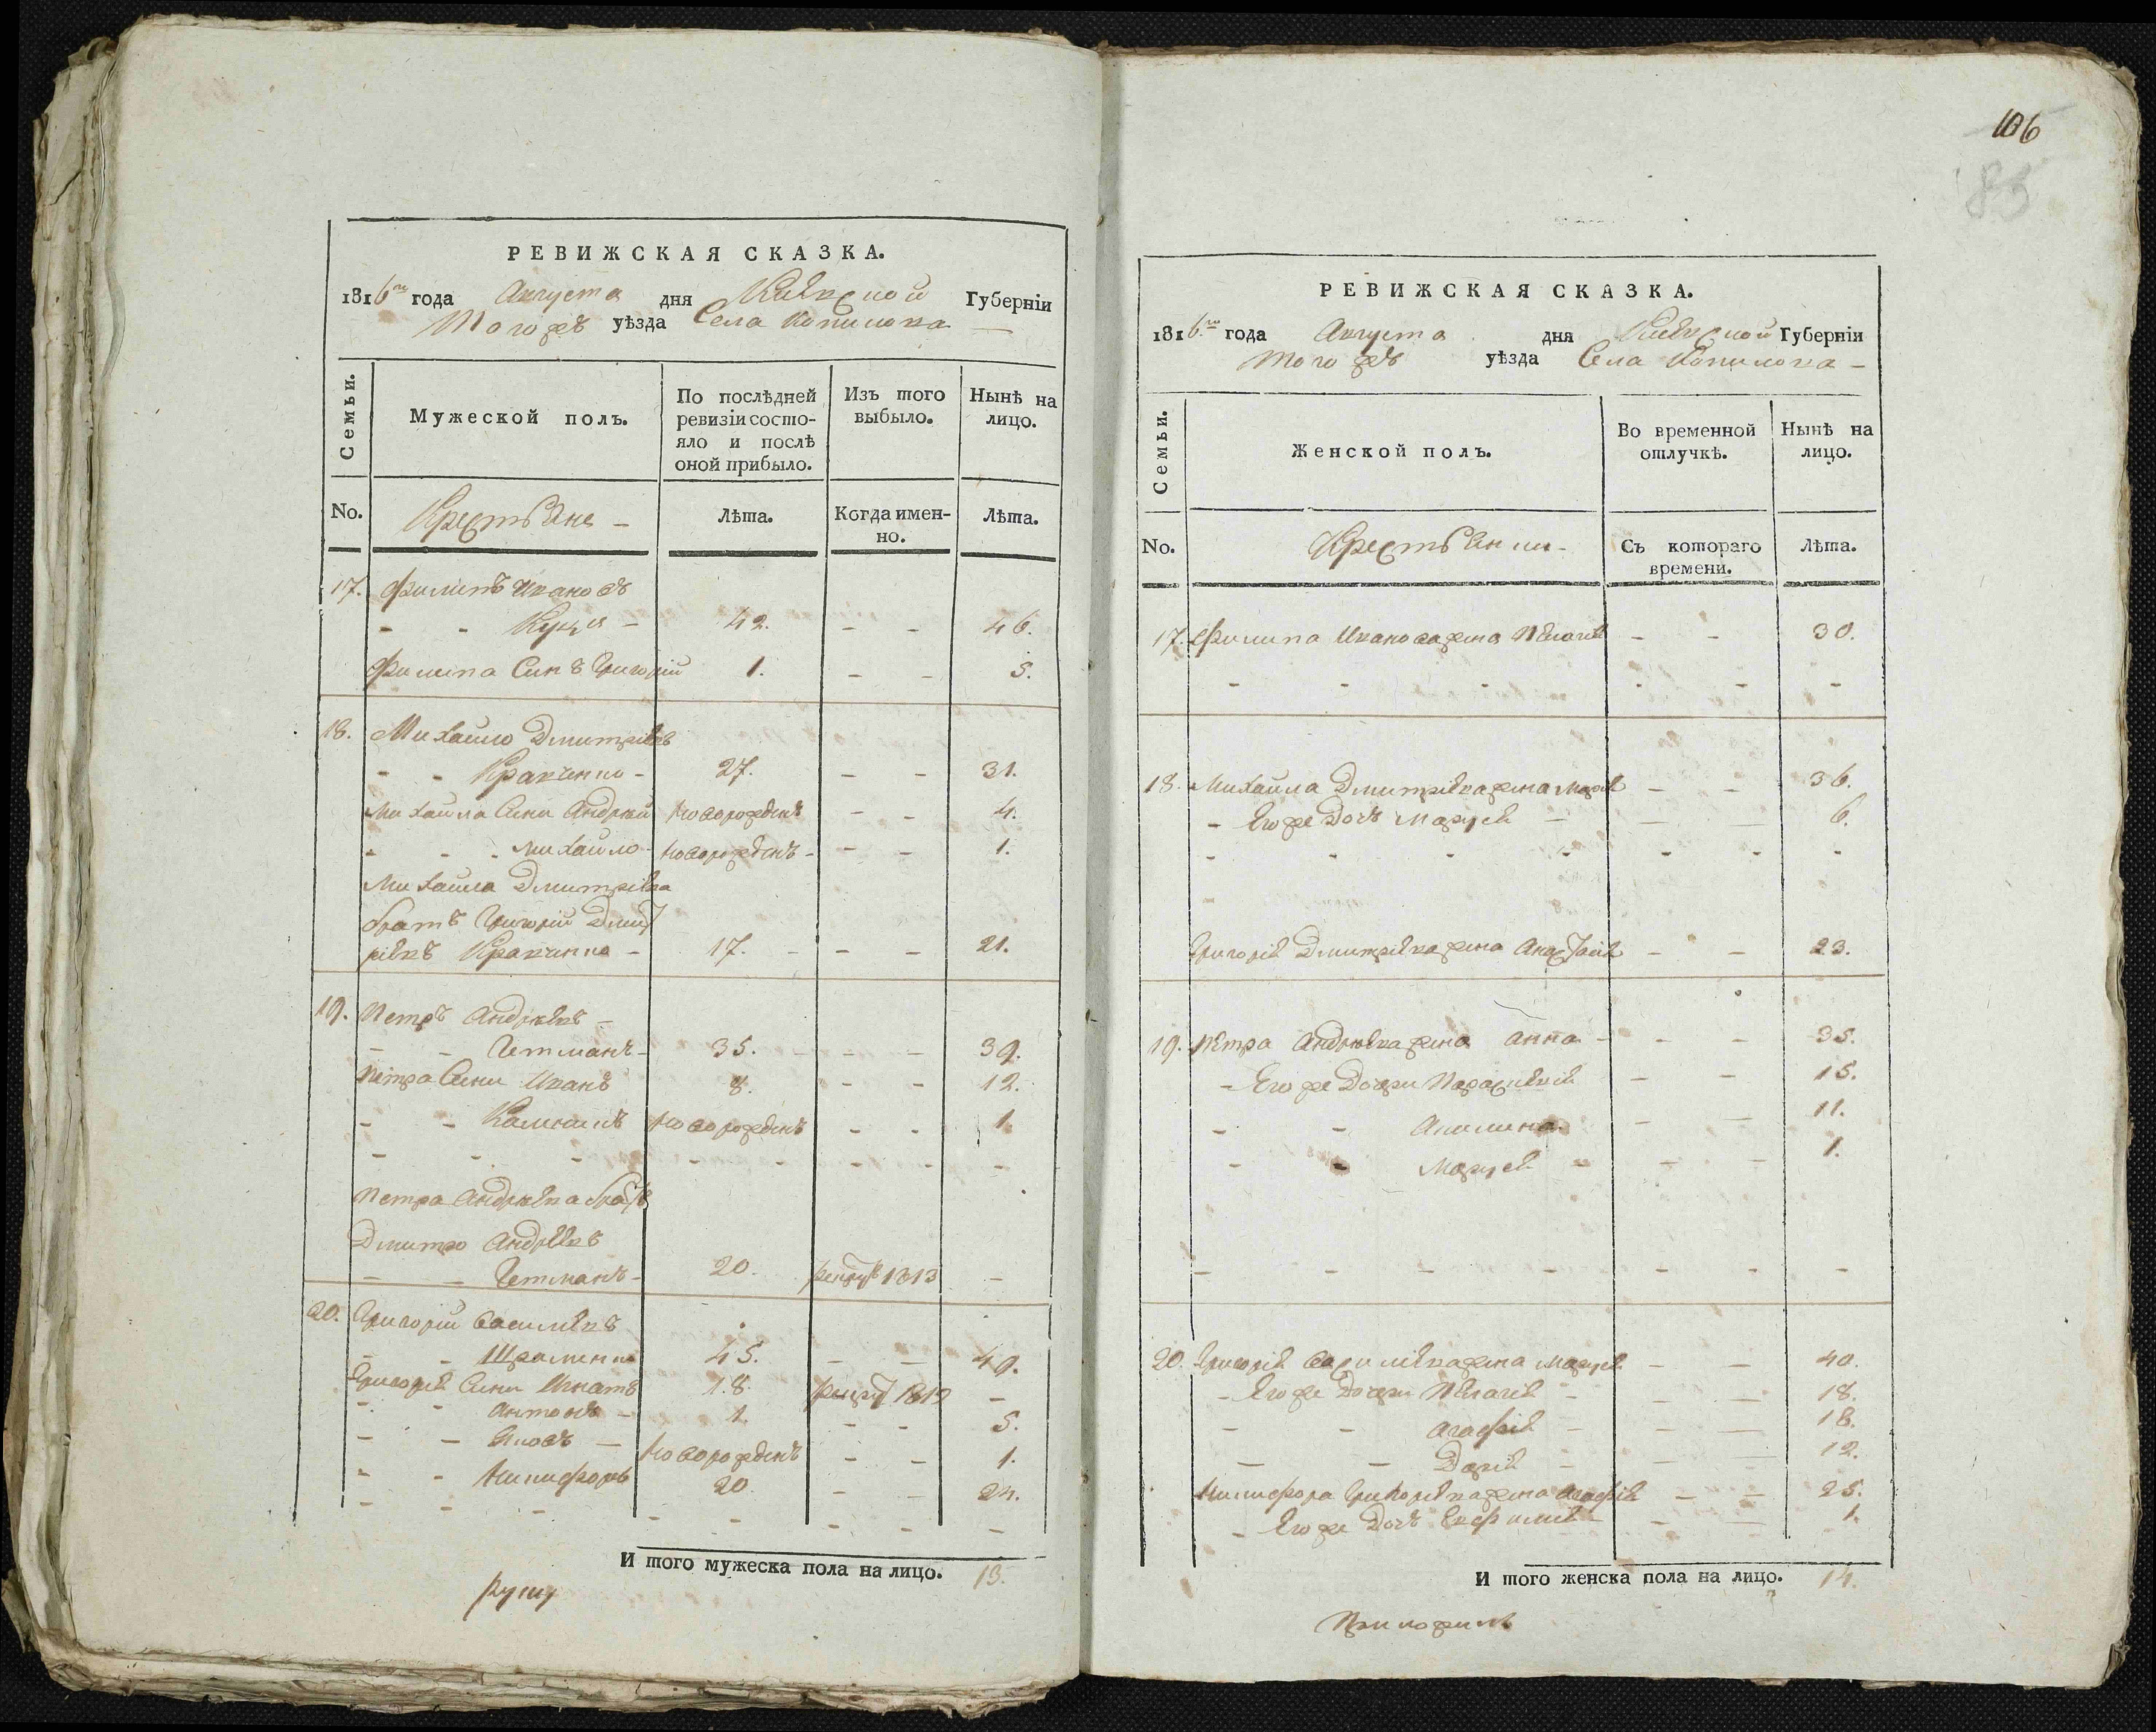 РЕВИЖСКАЯ СКАЗКА.
1816го года Августа дня Киевской Губерніи
Тогожъ уѣзда Села Копилова
Семьи.
Мужеской полъ.
По послѣдней ревизіи состояло и послѣ оной прибыло.
Изъ того выбыло.
Нынѣ на лицо.
No.
Крестьяне
Лѣта.
Когда именно.
Лѣта.
17. Филипъ Ивановъ
42. 46.
Филипа Синъ Григорій 1. 5.
18. Михайло Дмитріевъ
Кравченко 27. 31.
Михайла Сини Андрей Новорожденъ 4.
Михайло Новорожденъ 1.
Михайла Дмитріева
братъ Григорій Дмит
ріевъ Кравченко 17. 21.
19. Петръ Андрѣевъ
Гетманъ 35. 39.
Петра Сини Иванъ 8. 12.
Новорожденъ 1.
Петра Андрѣева братъ
Дмитро Андрѣевъ
Гетманъ 20. рекрут 1813
20. Григорій Василіевъ
45. 49.
Григорія Сини Игнатъ 18. рекрут 1812
Антонъ 1. 5.
Яковъ Новорожденъ 1.
Никифоръ 20. 24.
И того мужеска пола на лицо. 13.
руку
106
83
РЕВИЖСКАЯ СКАЗКА.
1816го года Августа дня Киевской Губерніи
Тогожъ уѣзда Села Копилова
Семьи.
Женской полъ.
Во временной отлучкѣ.
Нынѣ на лицо.
No.
Крестьянки
Съ котораго времени.
Лѣта.
17. Филипа Иванова жена Пелагея 30.
18. Михайла Дмитріева жена Марія 36.
Его же Дочъ Марія 6.
Григорія Дмитріева жена Анастасія 23.
19. Петра Андрѣева жена Анна 35.
Его же Дочери Параскевія 15.
Акилина 11.
Марія 1.
20. Григорія Василіева жена Марія 40.
Его же Дочери Пелагея 18.
Агафія 18.
Дарія 12.
Никифора Григоріева жена Агафія 25.
Его же Дочъ Евфимія 1.
И того женска пола на лицо. 14.
приложилъ